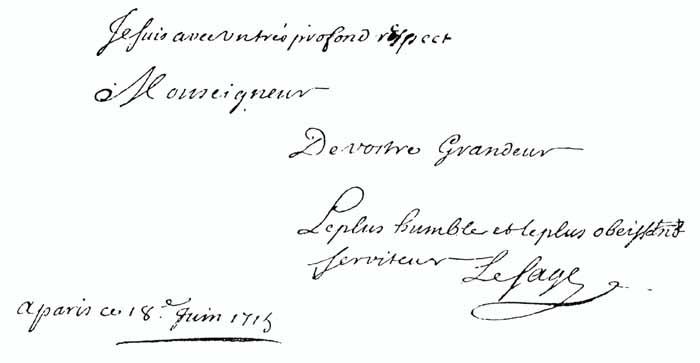 Je suis avec un trés profond respect
Monseigneur
De vostre Grandeur
Le plus humble et le plus obeissant
serviteur Le Sage
a paris ce 18.e Juin 1715